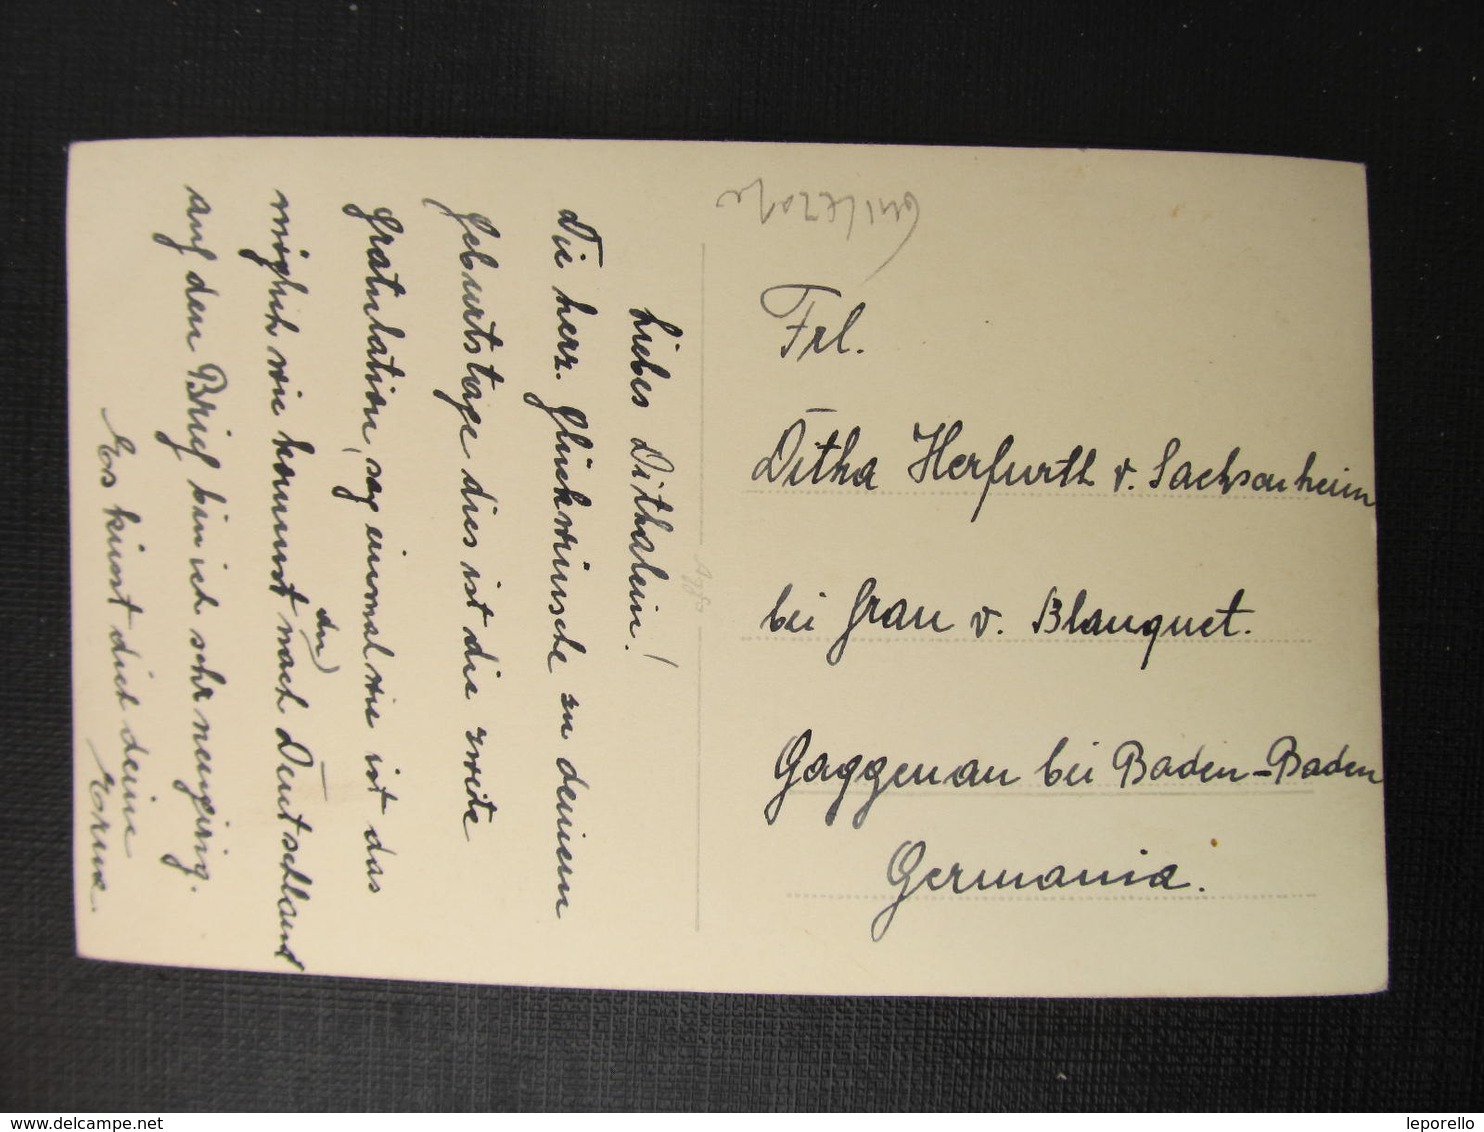 Liebes Dithalein!
Die herz. Glückwünsche zu deinem
Geburtstage dies ist die zweite
Gratulation, sag einmal wie ist das
möglich wie kommst du nach Deutschland
auf den Brief bin ich sehr neugirig.
Es küsst dich deine
Erna.
Frl.
Ditha Herfurth v. Sachsenheim
bei Frau v. Blanquet.
Gaggenau bei Baden-Baden
Germania.
www.delcampe.net
leporello